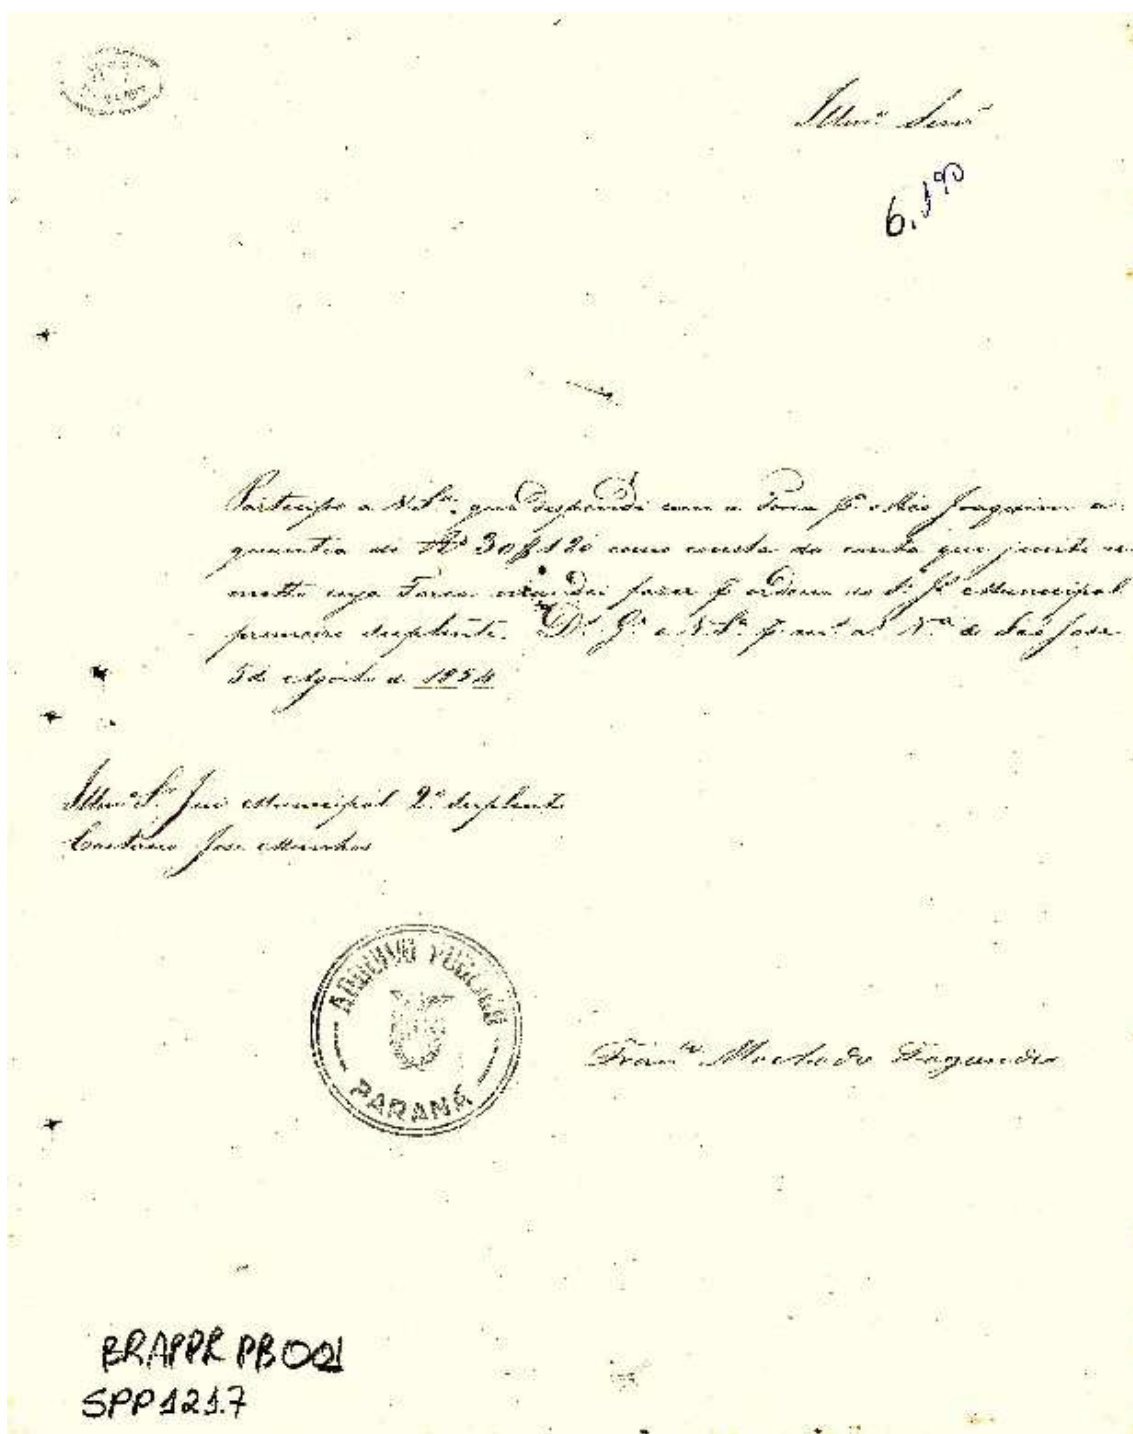 Illmº Senr
6.190
Participo a V. Sª. que despendi com a Forca pª o Reo Joaquim a
quantia de Rs 30$120 como consta da conta que junto re
metto cuja Forca mandei fazer pr ordem do Sr. Jz Municipal
primeiro suplente. Ds. Ge a V. Sª. pr ms as Vª de São José
5 de Agosto de 1854
Illmº Sr. Juiz Municipal 2º suplente
Caetano José Munhos
ARQUIVO PÚBLICO
PARANÁ
Francº Machado Fagundes
BRAPPR PB001
SPP1217